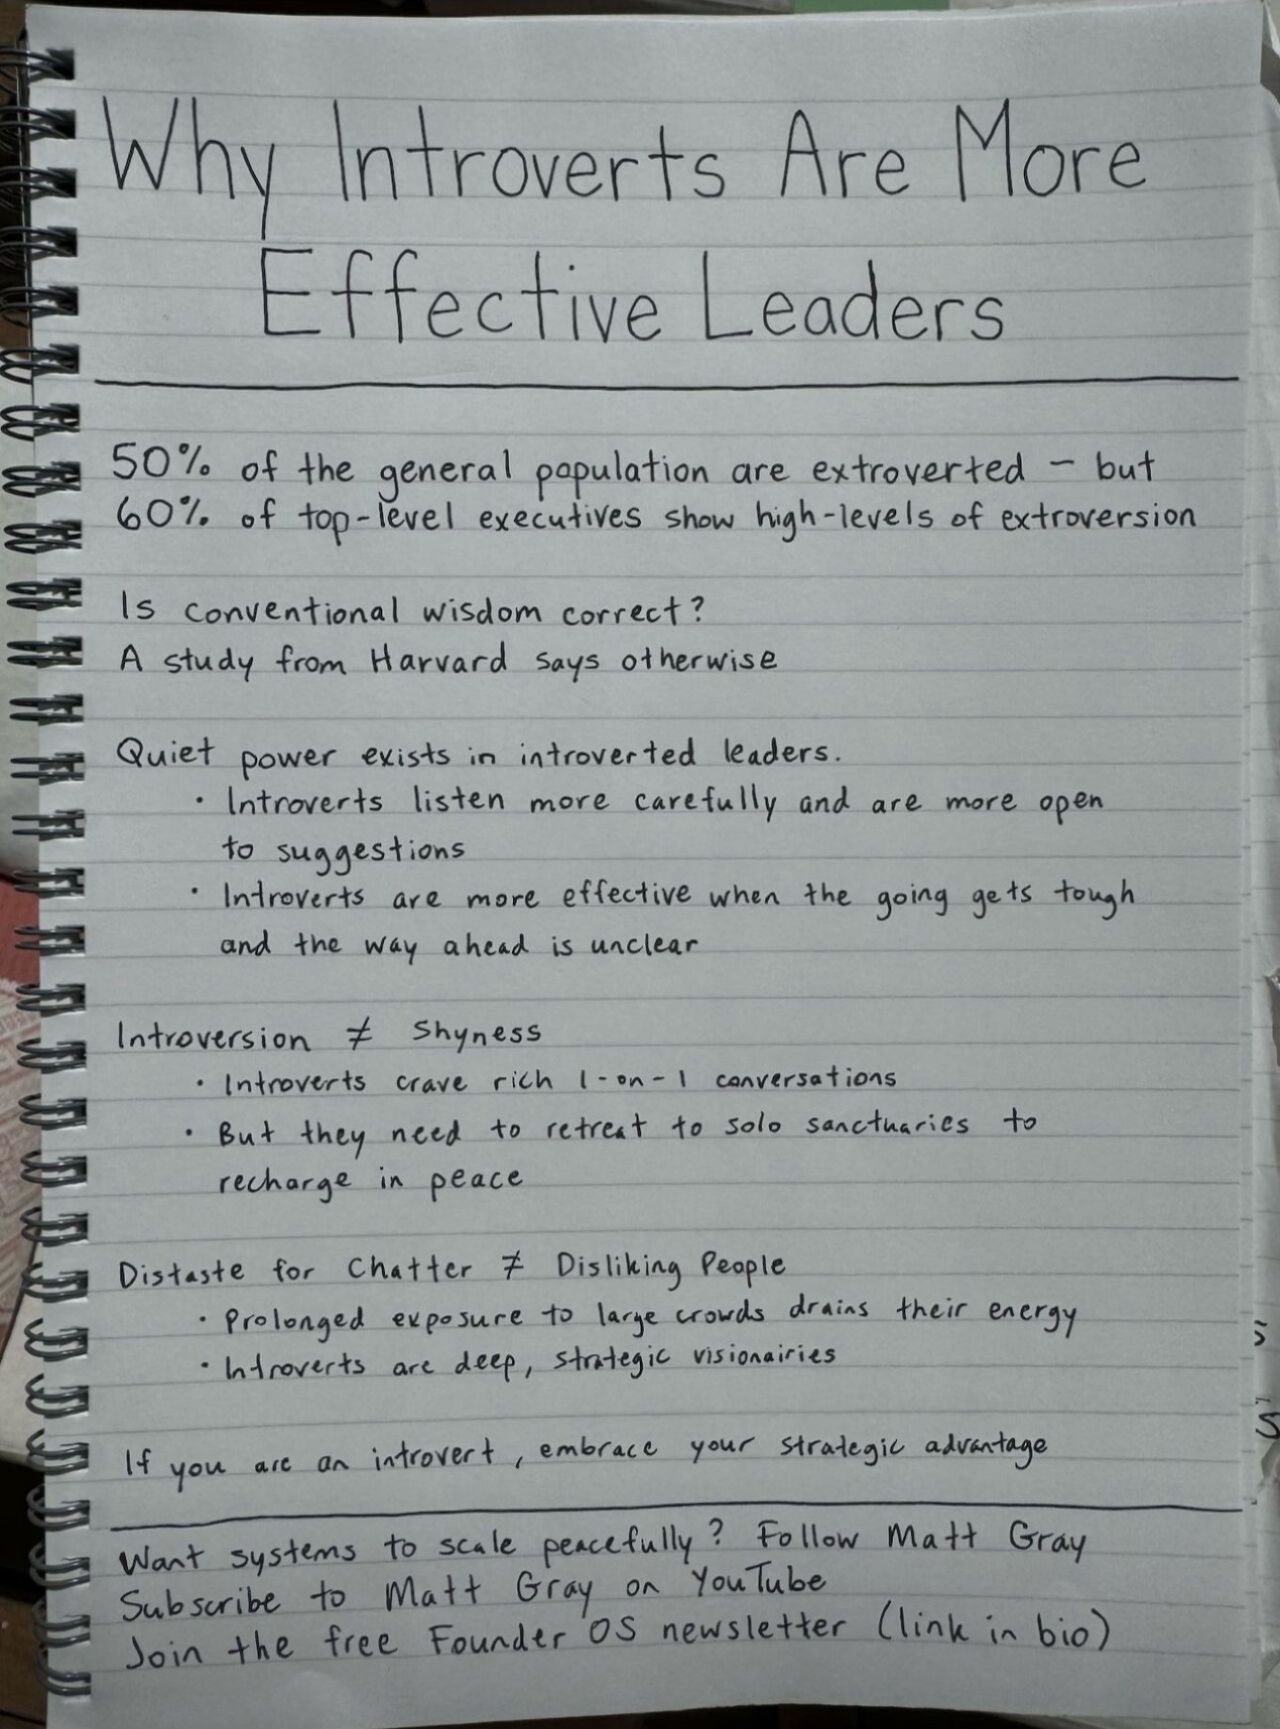 Why Introverts Are More
Effective Leaders
50% of the general population are extroverted - but
60% of top-level executives show high-levels of extroversion
Is conventional wisdom correct?
A study from Harvard says otherwise
Quiet power exists in introverted leaders.
• Introverts listen more carefully and are more open
to suggestions
• Introverts are more effective when the going gets tough
and the way ahead is unclear
Introversion ≠ Shyness
• Introverts crave rich 1-on-1 conversations
• But they need to retreat to solo sanctuaries to
recharge in peace
Distaste for Chatter ≠ Disliking People
• Prolonged exposure to large crowds drains their energy
• Introverts are deep, strategic visionairies
If you are an introvert, embrace your strategic advantage
Want systems to scale peacefully? Follow Matt Gray
Subscribe to Matt Gray on YouTube
Join the free Founder OS newsletter (link in bio)